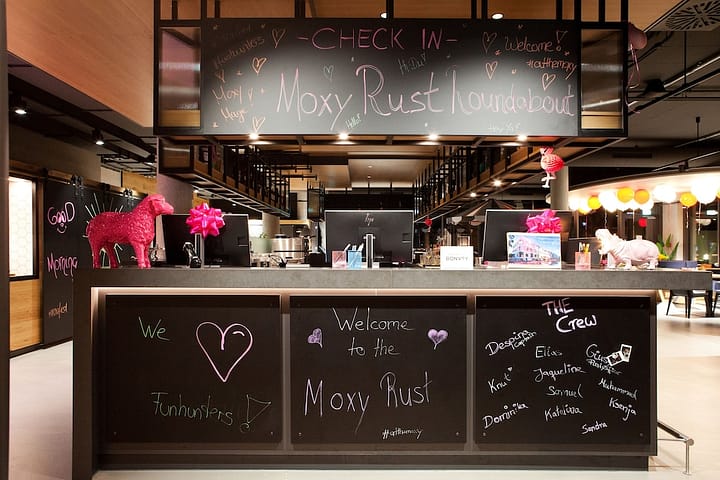 -CHECK IN-
Welcome!
#atthemoxy
Hi-Da!
Moxy
Moxy Rust Roundabout
Hello!
GOOD
Morning
hp
We
Funhunters!
Welcome
to the
Moxy Rust
#atthemoxy
THE
Crew
Despina
Captain
Elias
Knut
Jaqueline
Samuel
Muhammed
Dominika
Katarina
Ksenja
Sandra